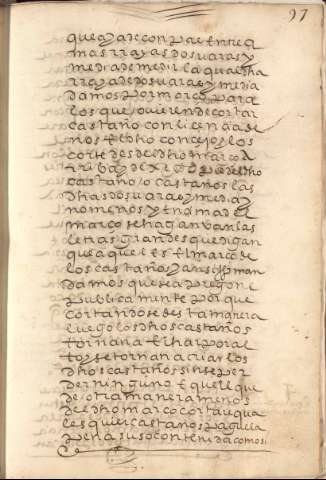 97
que aya de con par entre q
mas rrayas dos varas y
media de medir la qual dha
rraya de dos varas y media
damos por marco para
los que ovieren de cortar
castaño con licençia de
nos el dho concejo y los
corte desde el dho marco a
rriba y dexe del dho
castaño o castaños las
dhas dos varas y media y
no menos y en o m a de el
marco se hagan unas
letras grandes que digan
que aquel es el marco de
los castaños y ansi man
damos que sea pregon
publicamente por que
cortandose desta manera
luego los dhos castaños
tornan a echar por al
to y se tornan a criar los
dhos castaños sin se per
der ninguno e que el que
de otra manera menos
de el dho marco cortar qua
les quier castaños pague la
pena suso contenida como si